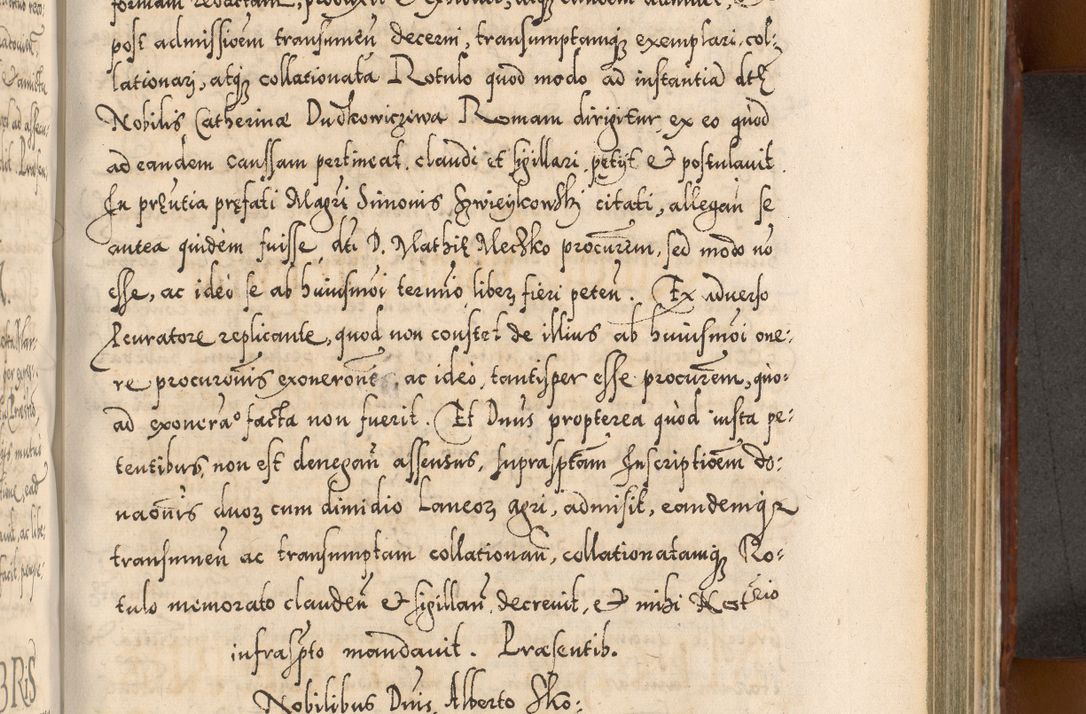 formam redactam, produxit et exhibuit, atq; eandem admitti, et
post admissioem transumen̄ decerni, transumptamq; exemplari col:
lationarj, atq; collationata Rotulo quod modo ad instantia dtę
Nobilis Catherinæ Dudkowiczewa Romam dirigitur, ex eo quod
ad eandem caussam pertineat, claudi et sigillari petijt et postulavit.
In prńtia pręfati Magri Simonis citati, allegan̄ se
antea quidem fuisse dti D. Mathię Meczko procurem, sed modo no
esse, ac ideo se ab huiusmoi termio liberq fieri peten̄. Ex adverso
Pcuratore replicante, quod non constet de illius ab huiusmoi one:
re procurōnis exonerone, ac ideo, tantisper esse procurem, quo:
ad exonerao facta non fuerit. Et Dnus propterea quod iusta pe:
tentibus non est denegan̄ assensus, suprasptam Inscriptioem do:
naōnis duorq cum dimidio Laneorq agri, admisit, eandemq;
transumen̄ ac transumptam collationan̄, collationatamq; Ro:
tulo memorato clauden̄ et sigillan̄ decrevit, et mihi Nostrio
infraspto mandavit. Præsentib.
Nobilibus Dnis Alberto Sko: